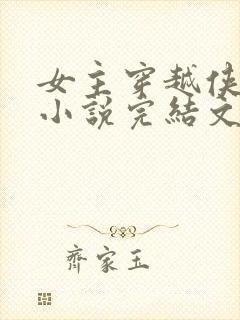 女主穿越侠
小説完結文
齊家玉